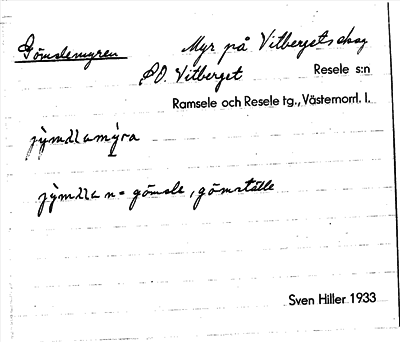 Gömslemyren
Myr på Vitbergets skog
SO. Vitberget
Resele s:n
Ramsele och Resele tg., Västernorrl. l.
jy̆msllamy̆ra
jy̆mslla n = gömsle, gömställe
Sven Hiller 1933